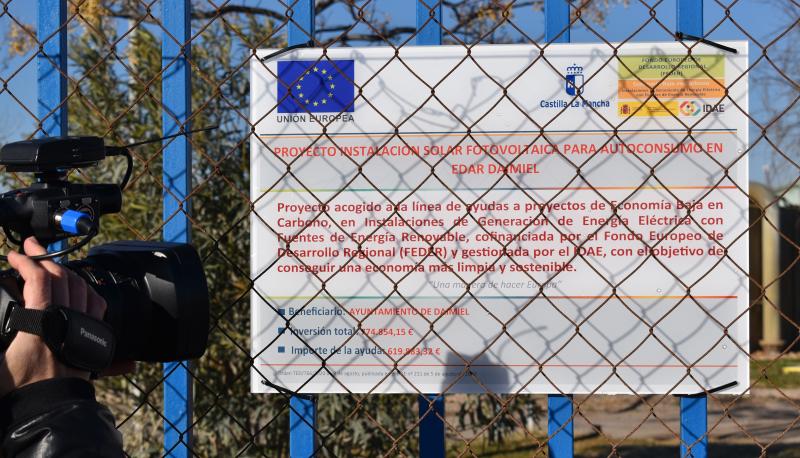 UNIÓN EUROPEA
Castilla-La Mancha
FONDO EUROPEO DE
DESARROLLO REGIONAL
(FEDER)
IDAE
PROYECTO INSTALACIÓN SOLAR FOTOVOLTAICA PARA AUTOCONSUMO EN
EDAR DAIMIEL
Proyecto acogido a la línea de ayudas a proyectos de Economía Baja en
Carbono, en Instalaciones de Generación de Energía Eléctrica con
Fuentes de Energía Renovable, cofinanciada por el Fondo Europeo de
Desarrollo Regional (FEDER) y gestionada por el IDAE, con el objetivo de
conseguir una economía más limpia y sostenible.
"Una manera de hacer Europa"
Beneficiario: AYUNTAMIENTO DE DAIMIEL
Inversión total: 774.854,15 €
Importe de la ayuda: 619.883,32 €
Panasonic